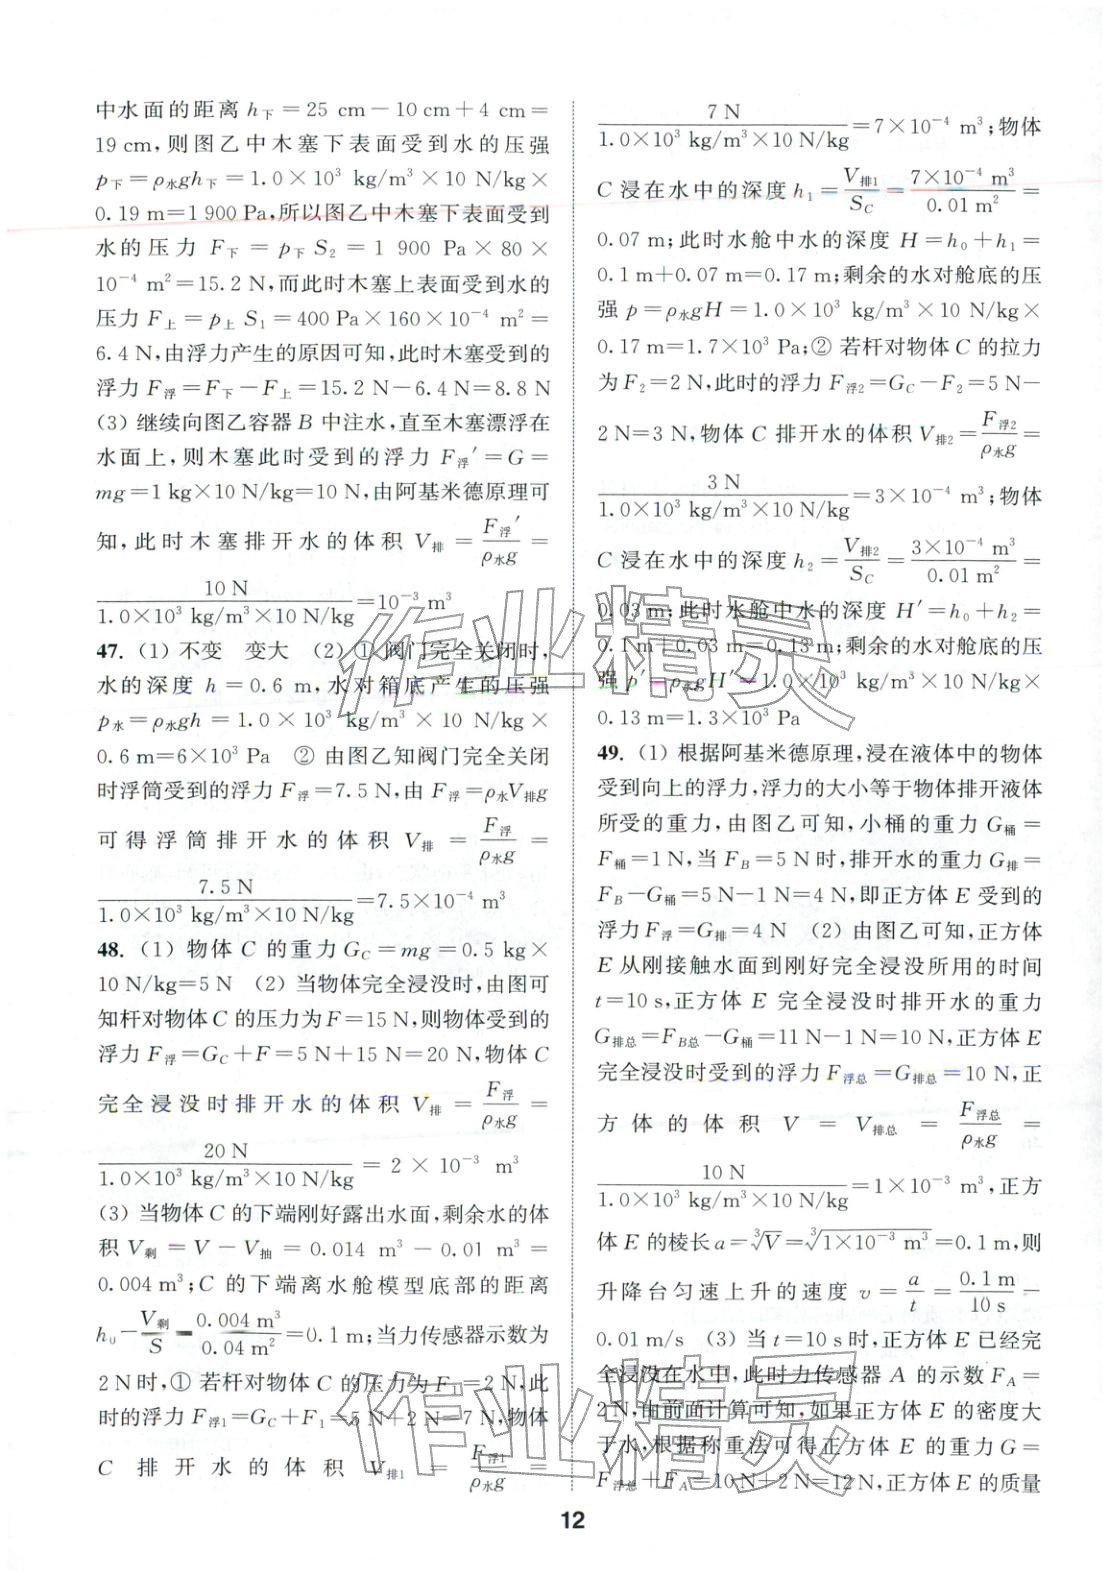 中水面的距离 h下 = 25 cm − 10 cm + 4 cm =
19 cm,则图乙中木塞下表面受到水的压强
p下 = ρ水gh下 = 1.0×10³ kg/m³×10 N/kg×
0.19 m=1 900 Pa,所以图乙中木塞下表面受到
水的压力 F下 = p下 S₂ = 1 900 Pa × 80 ×
10⁻⁴ m²=15.2 N,而此时木塞上表面受到水的
压力 F上 = p上 S₁ = 400 Pa×160×10⁻⁴ m² =
6.4 N,由浮力产生的原因可知,此时木塞受到的
浮力 F浮=F下−F上=15.2 N−6.4 N=8.8 N
(3) 继续向图乙容器 B 中注水,直至木塞漂浮在
水面上,则木塞此时受到的浮力 F浮′=G=
mg=1 kg×10 N/kg=10 N,由阿基米德原理可
知,此时木塞排开水的体积 V排 = F浮′/ρ水g =
10 N/(1.0×10³ kg/m³×10 N/kg)=10⁻³ m³
47. (1) 不变 变大 (2) ① 阀门完全关闭时,
水的深度 h=0.6 m,水对箱底产生的压强
p水=ρ水gh = 1.0 × 10³ kg/m³ × 10 N/kg ×
0.6 m=6×10³ Pa ② 由图乙知阀门完全关闭
时浮筒受到的浮力 F浮=7.5 N,由 F浮=ρ水V排g
可得浮筒排开水的体积 V排 = F浮/ρ水g =
7.5 N/(1.0×10³ kg/m³×10 N/kg)=7.5×10⁻⁴ m³
48. (1) 物体 C 的重力 G_C = mg = 0.5 kg×
10 N/kg=5 N (2) 当物体完全浸没时,由图可
知杆对物体C的压力为F=15 N,则物体受到的
浮力 F浮=G_C+F=5 N+15 N=20 N,物体 C
完全浸没时排开水的体积 V排 = F浮/ρ水g =
20 N/(1.0×10³ kg/m³×10 N/kg) = 2 × 10⁻³ m³
(3) 当物体C的下端刚好露出水面,剩余水的体
积 V剩 = V − V抽 = 0.014 m³ − 0.01 m³ =
0.004 m³;C 的下端离水舱模型底部的距离
h₀=V剩/S=0.004 m³/0.04 m²=0.1 m;当力传感器示数为
2 N时,① 若杆对物体 C 的压力为 F₁=2 N,此
时的浮力 F浮1=G_C+F₁=5 N+2 N=7 N,物体
C 排开水的体积 V排1 = F浮1/ρ水g =
7 N/(1.0×10³ kg/m³×10 N/kg)=7×10⁻⁴ m³;物体
C 浸在水中的深度 h₁=V排1/S_C=7×10⁻⁴ m³/0.01 m²=
0.07 m;此时水舱中水的深度 H=h₀+h₁=
0.1 m+0.07 m=0.17 m;剩余的水对舱底的压
强 p=ρ水gH=1.0×10³ kg/m³×10 N/kg×
0.17 m=1.7×10³ Pa;② 若杆对物体 C 的拉力
为 F₂=2 N,此时的浮力 F浮2=G_C−F₂=5 N−
2 N=3 N,物体 C 排开水的体积 V排2=F浮2/ρ水g=
3 N/(1.0×10³ kg/m³×10 N/kg)=3×10⁻⁴ m³;物体
C 浸在水中的深度 h₂=V排2/S_C=3×10⁻⁴ m³/0.01 m²=
0.03 m;此时水舱中水的深度 H′=h₀+h₂=
0.1 m+0.03 m=0.13 m;剩余的水对舱底的压
强 p′=ρ水gH′=1.0×10³ kg/m³×10 N/kg×
0.13 m=1.3×10³ Pa
49. (1) 根据阿基米德原理,浸在液体中的物体
受到向上的浮力,浮力的大小等于物体排开液体
所受的重力,由图乙可知,小桶的重力 G桶=
F桶=1 N,当 F_B=5 N时,排开水的重力 G排=
F_B−G桶=5 N−1 N=4 N,即正方体 E 受到的
浮力 F浮=G排=4 N (2) 由图乙可知,正方体
E 从刚接触水面到刚好完全浸没所用的时间
t=10 s,正方体 E 完全浸没时排开水的重力
G排总=F_B总−G桶=11 N−1 N=10 N,正方体 E
完全浸没时受到的浮力 F浮总=G排总=10 N,正
方体的体积 V = V排总 = F浮总/ρ水g =
10 N/(1.0×10³ kg/m³×10 N/kg)=1×10⁻³ m³,正方
体 E 的棱长 a=³√V=³√(1×10⁻³ m³)=0.1 m,则
升降台匀速上升的速度 v = a/t = 0.1 m/10 s =
0.01 m/s (3) 当 t=10 s时,正方体 E 已经完
全浸没在水中,此时力传感器 A 的示数 F_A=
2 N,由前面计算可知,如果正方体 E 的密度大
于水,根据称重法可得正方体 E 的重力 G=
F浮总+F_A=10 N+2 N=12 N,正方体 E 的质量
12
作业精灵
作业精灵